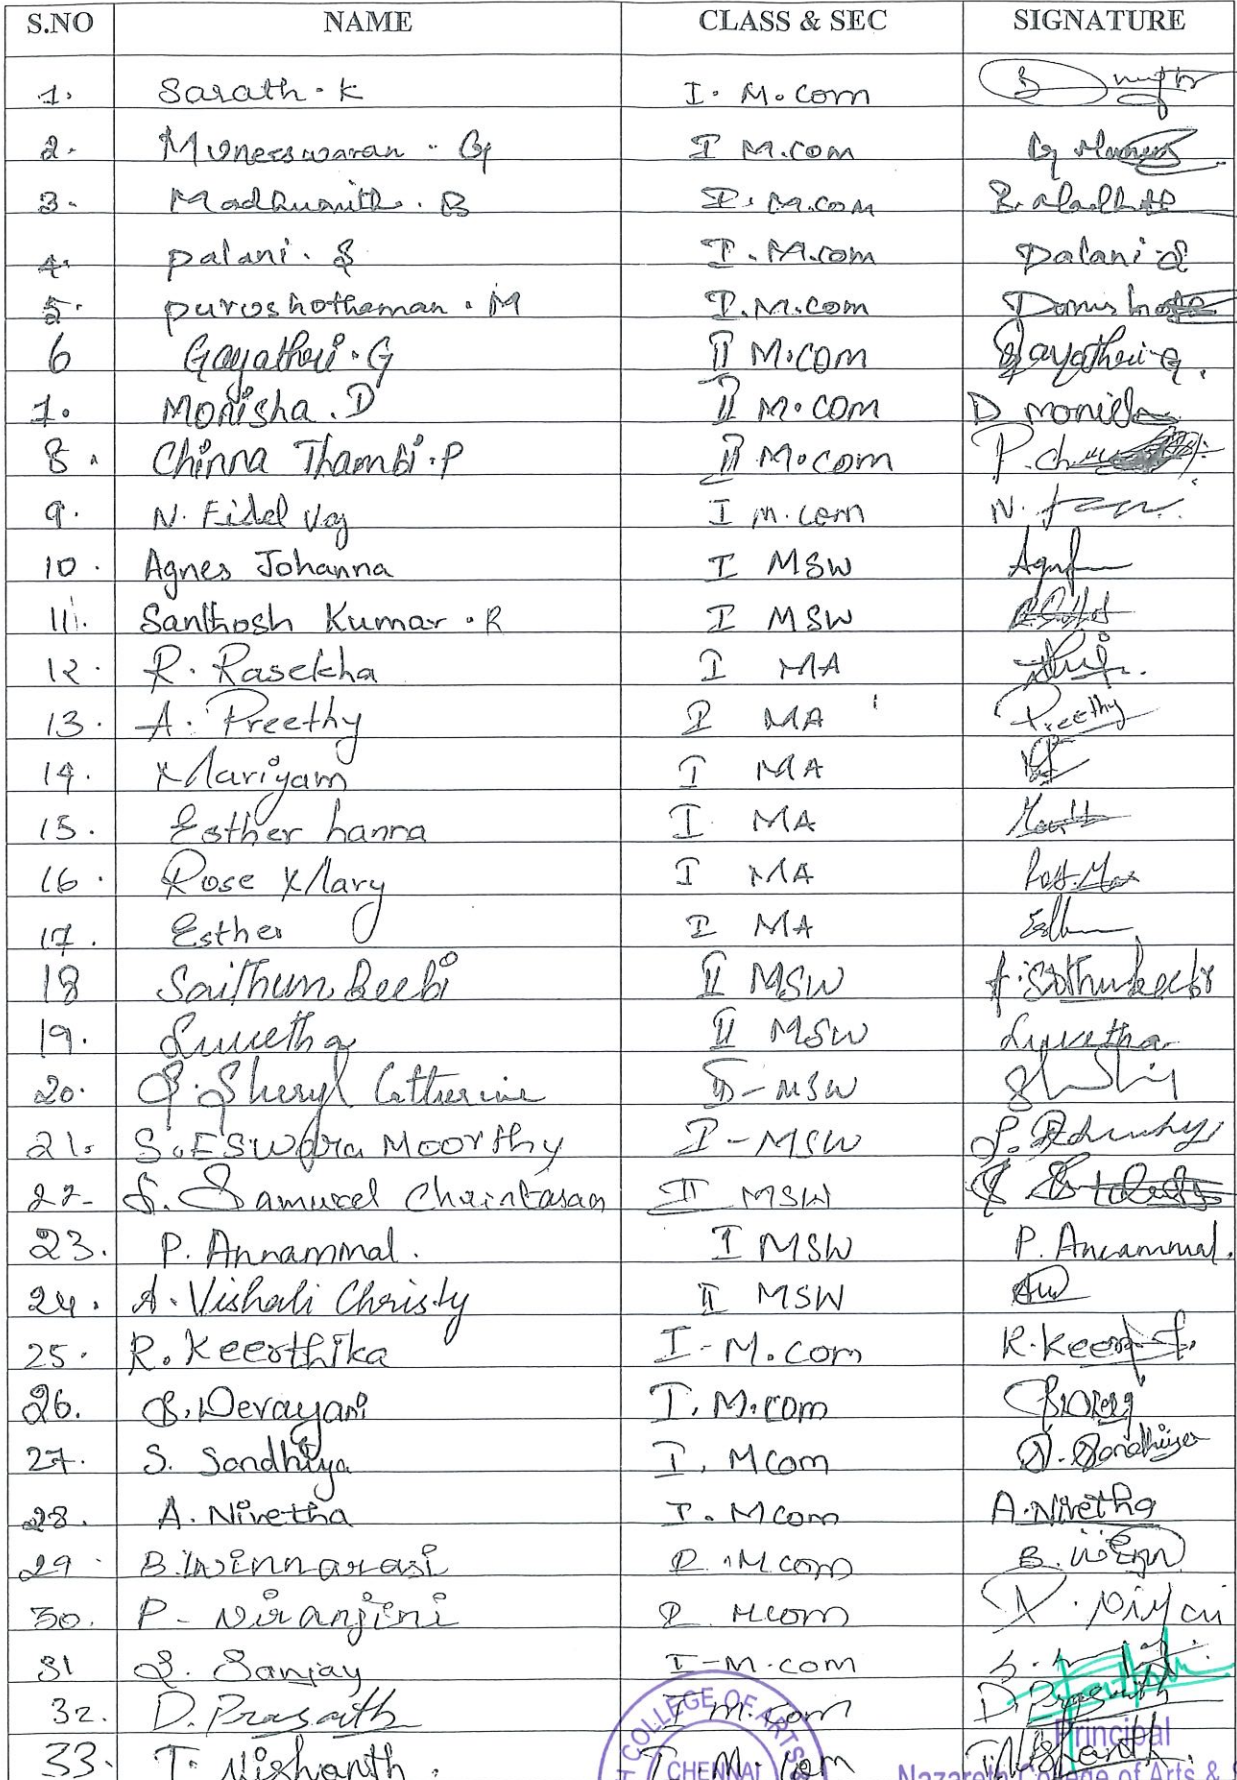 S.NO NAME CLASS & SEC SIGNATURE
1. Sarath . K I . M.com
2. Muneeswaran . G I M.com
3. Madhumith . B I . M.com
4. palani . S I . M.com Palani S
5. purushothaman . M I . M.com
6 Gayathri . G II M.com Gayathri G.
7. Monisha . D II M.com D Monisha
8. Chinna Thambi . P II M.com
9. N. Fidel I M.com
10. Agnes Johanna I MSW
11. Santhosh Kumar . R I MSW
12. R. Rasekha I MA
13. A. Preethy I MA Preethy
14. Mariyam I MA
15. Esther hanna I MA
16. Rose Mary I MA
17. Esther I MA
18 Saithum Beebi II MSW
19. Suvetha II MSW Suvetha
20. S. Sheryl Catherine II - MSW
21. S. ESWara MOOrthy I - MSW
22- S. Samuel II MSW
23. P. Annammal. I MSW P. Annammal.
24. A. Vishali Christy II MSW
25. R. Keerthika I - M.com
26. S. Devayani I . M.com
27. S. Sandhiya I . MCom S. Sandhiya
28. A. Nivetha I . MCom A. Nivetha
29 B. Winnarasi I . M.com
30. P - Niranjini I MCom
31 S. Sanjay I - M.com
32. D. Prasath I M.com D. Prasath
33. T. Nishanth . I . M.com T. Nishanth .
COLLEGE OF ARTS
CHENNAI
Principal
Nazareth College of Arts &